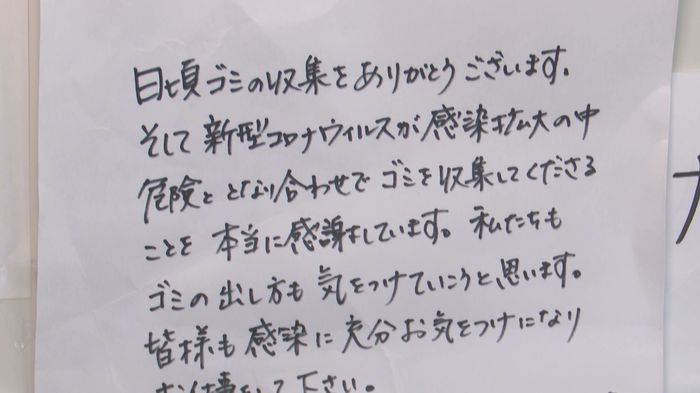 日頃ゴミの収集をありがとうございます。
そして新型コロナウィルスが感染拡大の中
危険ととなり合わせでゴミを収集してくださる
ことを本当に感謝しています。私たちも
ゴミの出し方も気をつけていこうと思います。
皆様も感染に充分お気をつけになり
お仕事をして下さい。